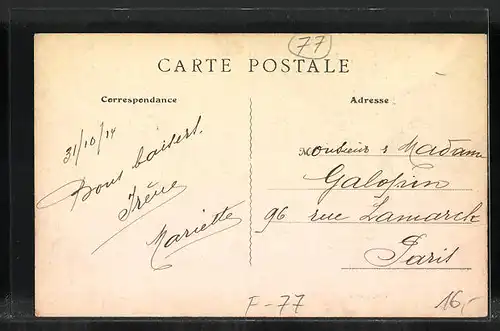 77
CARTE POSTALE
Correspondance
Adresse :
31/10/14
Bons baisers.
Irène
Mariette
Monsieur & Madame
Galopin
96 rue Lamarck
Paris
F-77
16,-